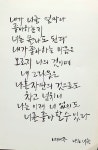 내가 너를 얼마나
좋아하는지
너는 몰라도 된다
너를 좋아하는 마음은
오로지 나의 것이요
나의 그리움은
나 혼자만의 것으로도
차고 넘치니까
나는 이제 너 없이도
너를 좋아할 수 있다